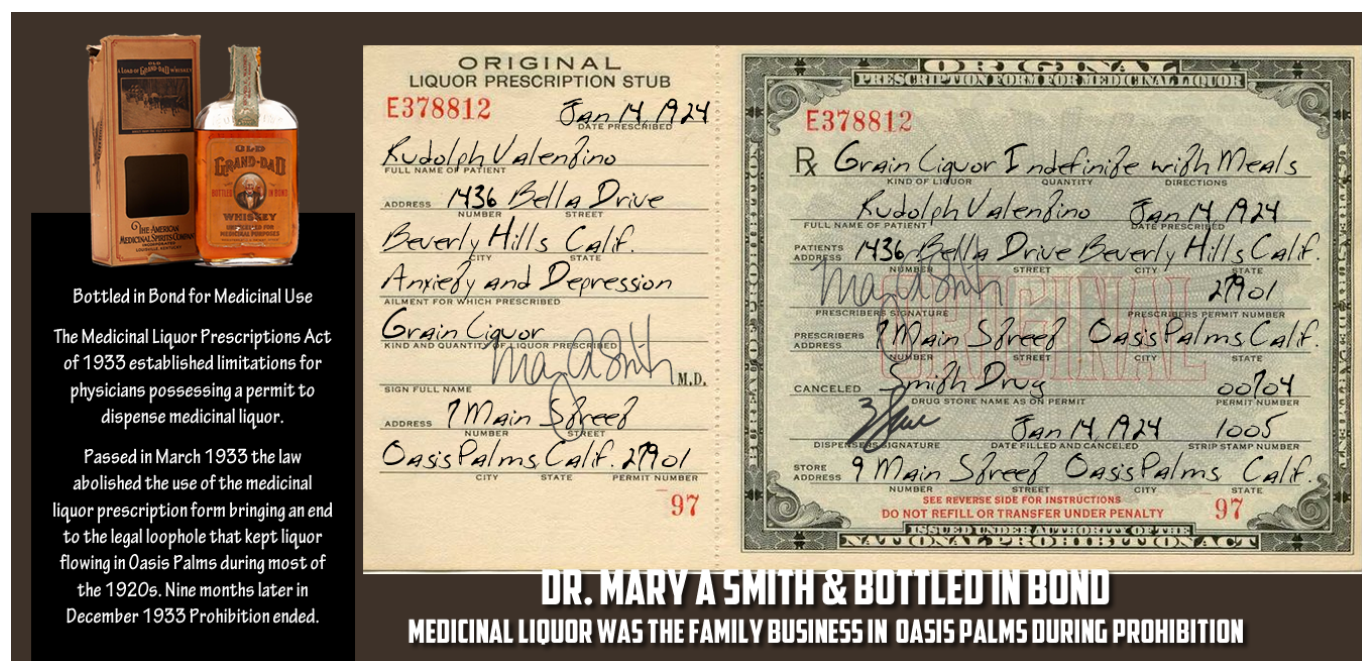 A LOAD OF GRAND-DAD WHISKEY
THE AMERICAN
MEDICINAL SPIRITS COMPANY
INCORPORATED
OLD
GRAND-DAD
BOTTLED IN BOND
WHISKEY
UNEXCELLED FOR
MEDICINAL PURPOSES
Bottled in Bond for Medicinal Use
The Medicinal Liquor Prescriptions Act
of 1933 established limitations for
physicians possessing a permit to
dispense medicinal liquor.
Passed in March 1933 the law
abolished the use of the medicinal
liquor prescription form bringing an end
to the legal loophole that kept liquor
flowing in Oasis Palms during most of
the 1920s. Nine months later in
December 1933 Prohibition ended.
ORIGINAL
LIQUOR PRESCRIPTION STUB
E378812 Jan 14 1924
DATE PRESCRIBED
Rudolph Valentino
FULL NAME OF PATIENT
ADDRESS 1436 Bella Drive
NUMBER STREET
Beverly Hills Calif.
CITY STATE
Anxiety and Depression
AILMENT FOR WHICH PRESCRIBED
Grain Liquor
KIND AND QUANTITY OF LIQUOR PRESCRIBED
Mary A Smith M.D.
SIGN FULL NAME
ADDRESS 7 Main Street
NUMBER STREET
Oasis Palms, Calif. 27901
CITY STATE PERMIT NUMBER
97
ORIGINAL
PRESCRIPTION FORM FOR MEDICINAL LIQUOR
E378812
Rx Grain Liquor Indefinite with Meals
KIND OF LIQUOR QUANTITY DIRECTIONS
Rudolph Valentino Jan 14 1924
FULL NAME OF PATIENT DATE PRESCRIBED
PATIENTS ADDRESS 1436 Bella Drive Beverly Hills Calif.
NUMBER STREET CITY STATE
Mary A Smith 27901
PRESCRIBERS SIGNATURE PRESCRIBERS PERMIT NUMBER
ORIGINAL
PRESCRIBERS ADDRESS 7 Main Street Oasis Palms Calif.
NUMBER STREET CITY STATE
CANCELED Smith Drug 00704
DRUG STORE NAME AS ON PERMIT PERMIT NUMBER
Jan 14 1924 1005
DISPENSERS SIGNATURE DATE FILLED AND CANCELED STRIP STAMP NUMBER
STORE ADDRESS 9 Main Street Oasis Palms Calif.
NUMBER STREET CITY STATE
SEE REVERSE SIDE FOR INSTRUCTIONS
DO NOT REFILL OR TRANSFER UNDER PENALTY 97
ISSUED UNDER AUTHORITY OF THE
NATIONAL PROHIBITION ACT
DR. MARY A SMITH & BOTTLED IN BOND
MEDICINAL LIQUOR WAS THE FAMILY BUSINESS IN OASIS PALMS DURING PROHIBITION